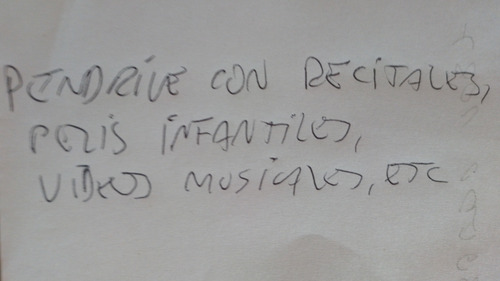 PENDRIVE CON RECITALES,
PELIS INFANTILES,
VIDEOS MUSICALES, ETC